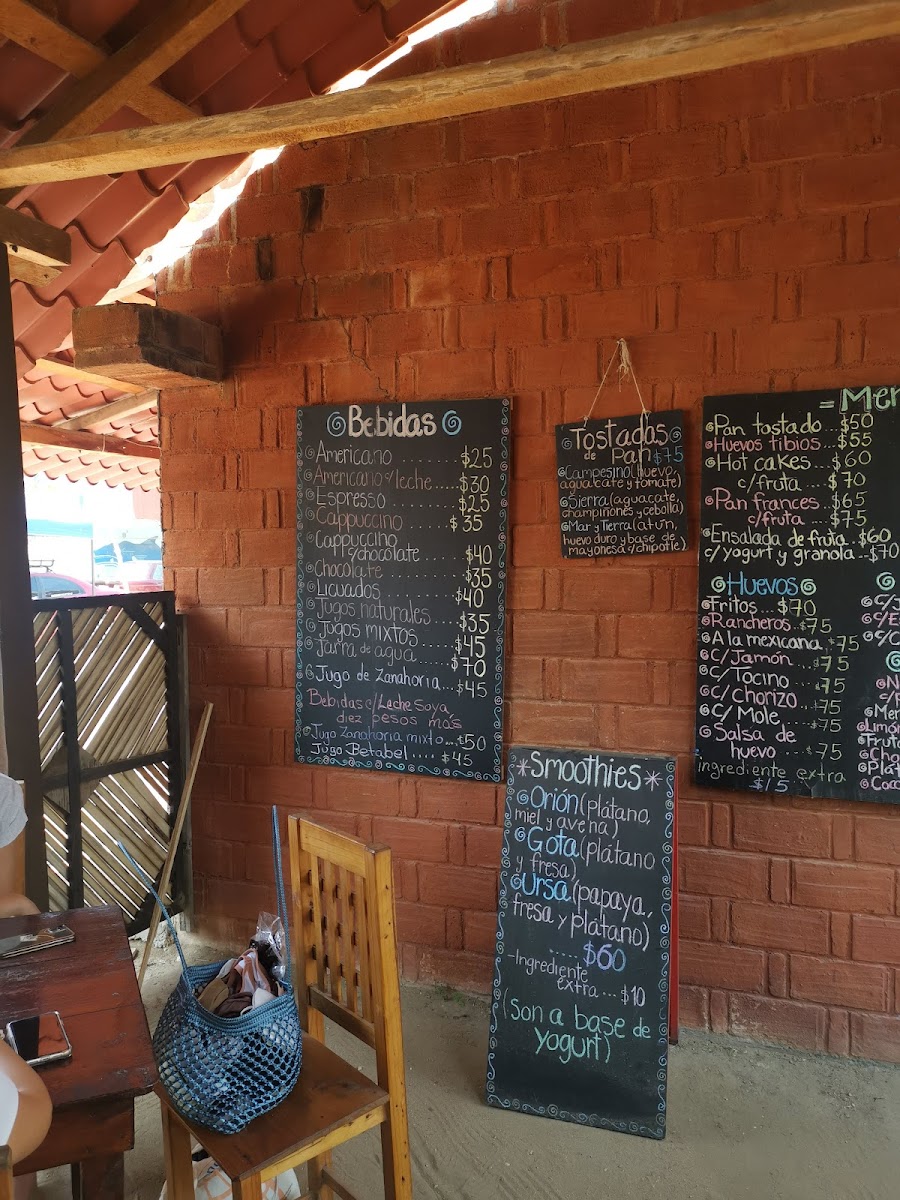 Bebidas
Americano ........ $25
Americano c/leche .... $30
Espresso ........ $25
Cappuccino ...... $35
Cappuccino
c/chocolate ..... $40
Chocolate ....... $35
Licuados ........ $40
Jugos naturales .... $35
Jugos mixtos .... $45
Jarra de agua .... $70
Jugo de Zanahoria ... $45
Bebidas c/Leche Soya
diez pesos más
Jugo Zanahoria mixto ... $50
Jugo Betabel .... $45
Tostadas
de Pan $75
Campesino (huevo,
aguacate y tomate)
Sierra (aguacate,
champiñones y cebolla)
Mar y Tierra (atún,
huevo duro y base de
mayonesa c/chipotle)
Smoothies
Orión (plátano,
miel y avena)
Gota (plátano
y fresa)
Ursa (papaya,
fresa y plátano)
...... $60
-Ingrediente
extra ... $10
(Son a base de
yogurt)
= Men
Pan tostado ... $50
Huevos tibios ... $55
Hot cakes ... $60
c/fruta ... $70
Pan frances ... $65
c/fruta ... $75
Ensalada de fruta .. $60
c/yogurt y granola .. $70
Huevos
Fritos ... $70
Rancheros .. $75
A la mexicana . $75
C/Jamón .... $75
C/Tocino .... $75
C/Chorizo .... $75
C/ Mole ..... $75
Salsa de
huevo ... $75
ingrediente extra
$15